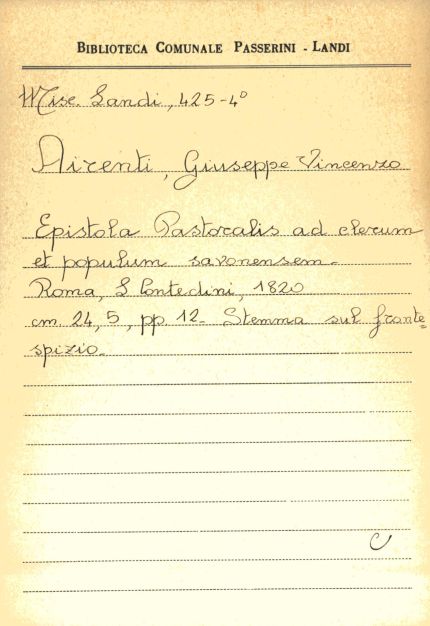 BIBLIOTECA COMUNALE PASSERINI - LANDI
Misc. Landi, 425-4°
Airenti, Giuseppe Vincenzo
Epistola Pastoralis ad clerum
et populum savonensem-
Roma, L Contedini, 1820
cm. 24,5, pp 12- Stemma sul fronte=
spizio-
C